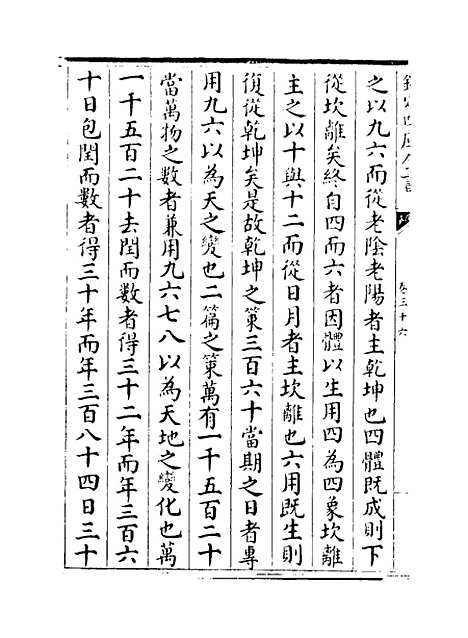 欽定四庫全書
卷三十六
之以九六而從老陰老陽者主乾坤也四體既成則下
從坎離矣終自四而六者因體以生用四為四象坎離
主之以十與十二而從日月者主坎離也六用既生則
復從乾坤矣是故乾坤之策三百六十當期之日者專
用九六以為天之變也二篇之策萬有一千五百二十
當萬物之數者兼用九六七八以為天地之變化也萬
一千五百二十去閏而數者得三十二年而年三百六
十日包閏而數者得三十年而年三百八十四日三十